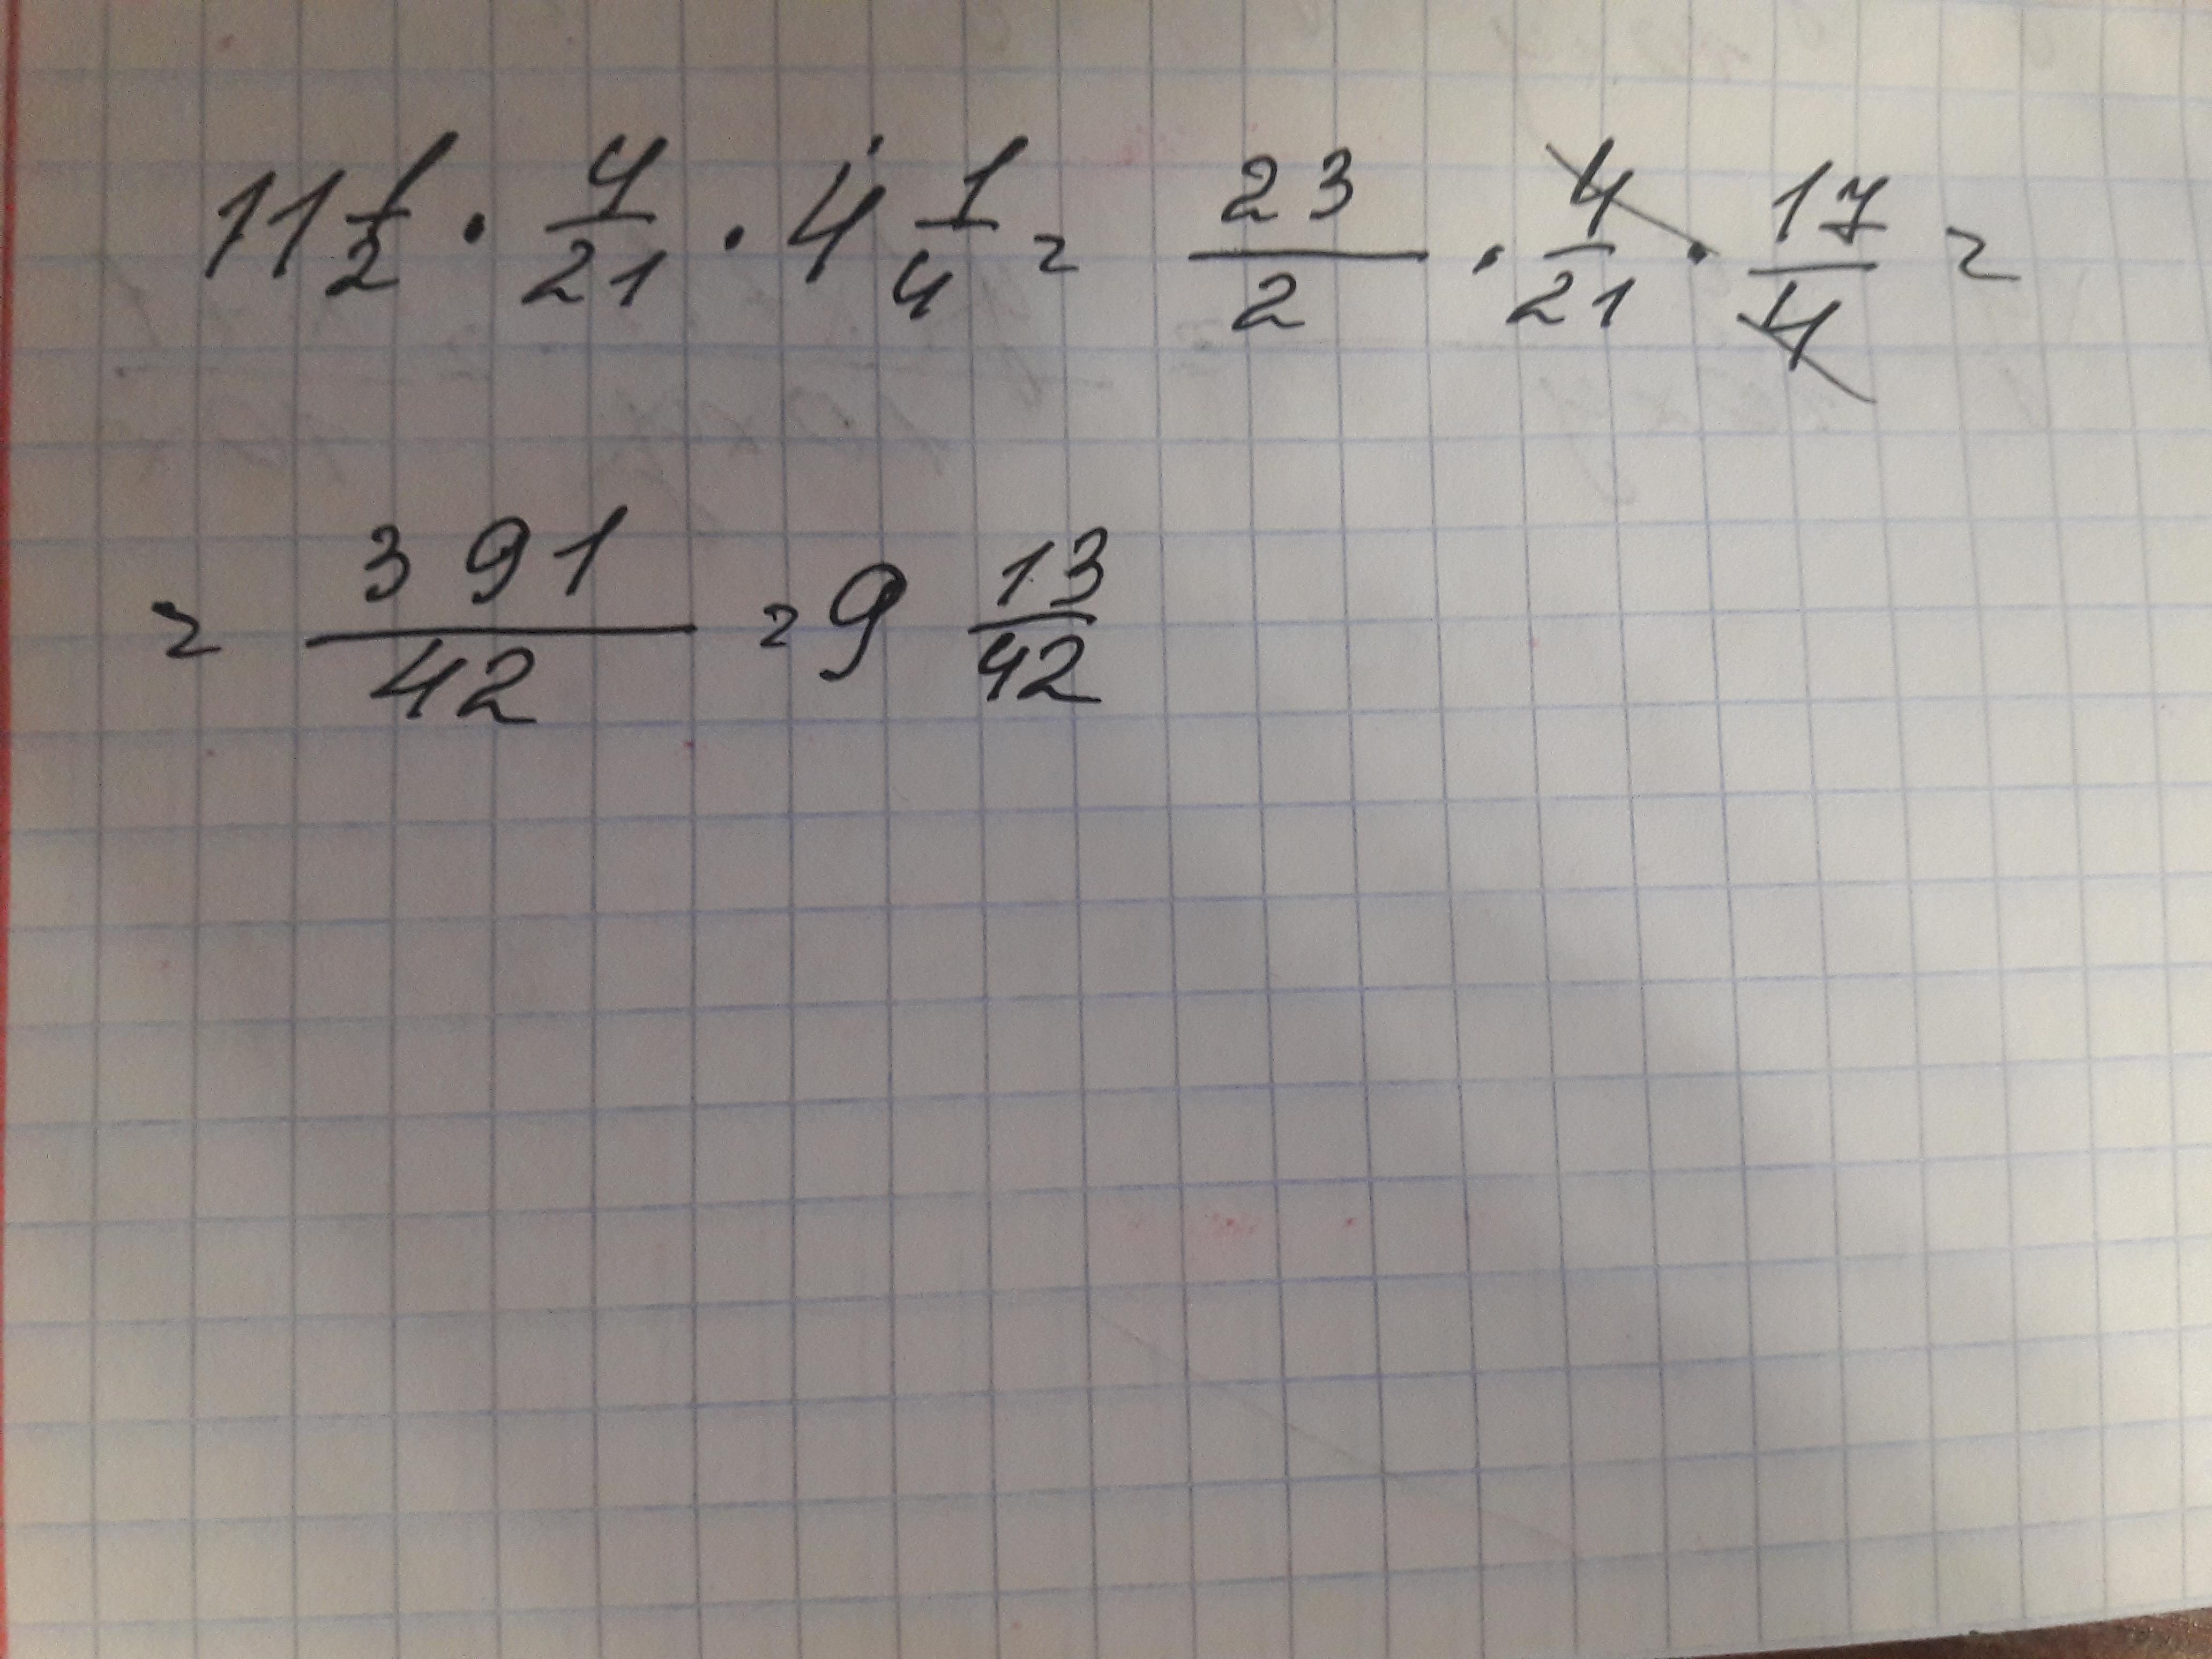 11 1/2 · 4/21 · 4 1/4 = 23/2 · 4/21 · 17/4 =
= 391/42 = 9 13/42